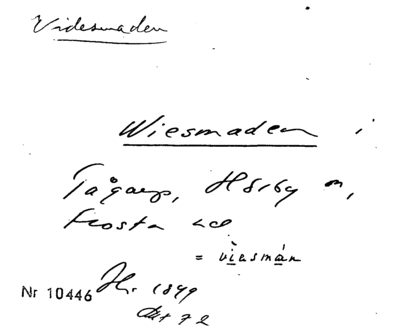 Videsmaden
Wiesmaden i
Tågarp, Hörby sn,
Frosta hd
= vìesmán
Nr 10446 Hr. 1899
72